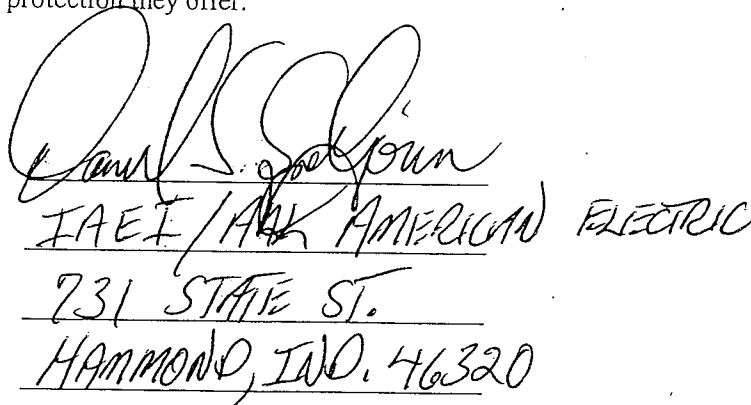 protection they offer.
IAEI / AAK AMERICAN ELECTRIC
731 STATE ST.
HAMMOND, IND. 46320